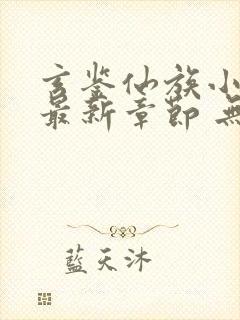 玄鉴仙族小
最新章节 無
藍天沐